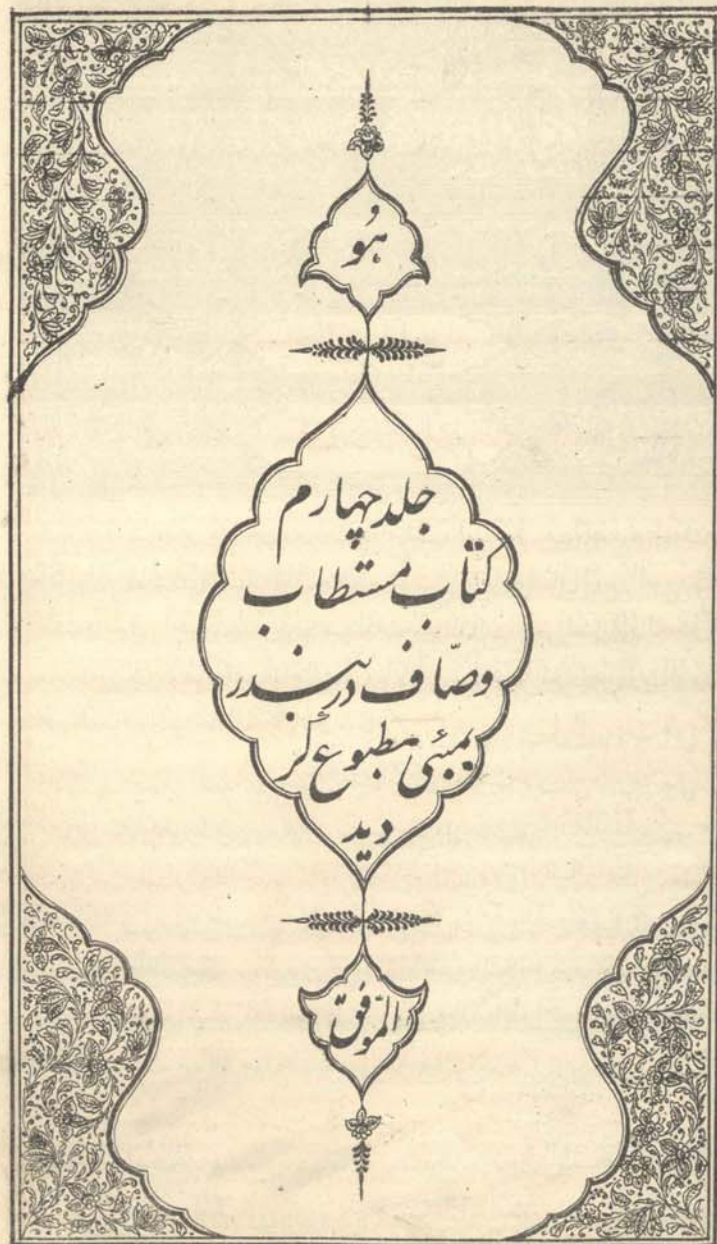 هُو
جلد چهارم
کتاب مستطاب
وصّاف در بندر
بمبئی مطبوع گر
دید
المَوفّق